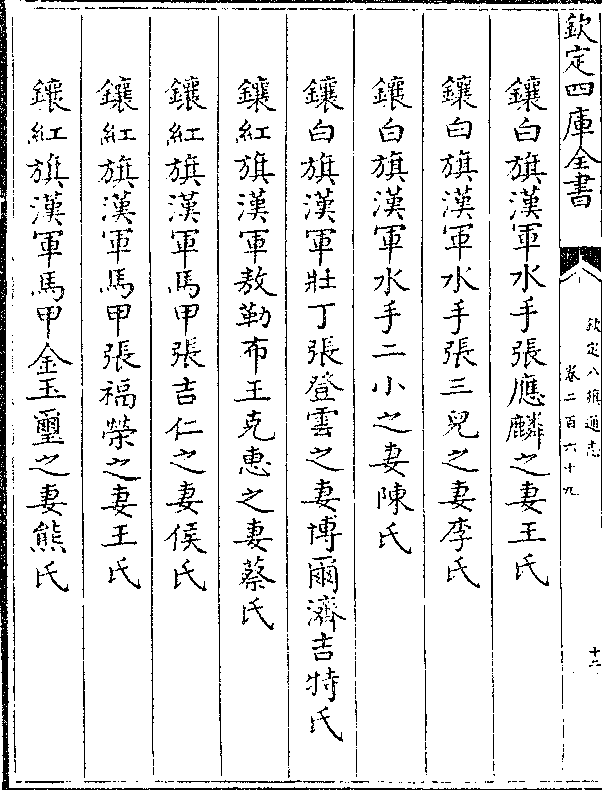 欽定四庫全書
欽定八旗通志
卷二百六十九
十二
鑲白旗漢軍水手張應麟之妻王氏
鑲白旗漢軍水手張三兒之妻李氏
鑲白旗漢軍水手二小之妻陳氏
鑲白旗漢軍壯丁張登雲之妻博爾濟吉特氏
鑲紅旗漢軍敖勒布王克惠之妻蔡氏
鑲紅旗漢軍馬甲張吉仁之妻侯氏
鑲紅旗漢軍馬甲張福榮之妻王氏
鑲紅旗漢軍馬甲金玉璽之妻熊氏